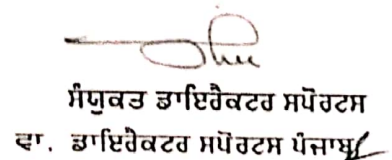 ਸੰਯੁਕਤ ਡਾਇਰੈਕਟਰ ਸਪੋਰਟਸ
ਵਾ. ਡਾਇਰੈਕਟਰ ਸਪੋਰਟਸ ਪੰਜਾਬ